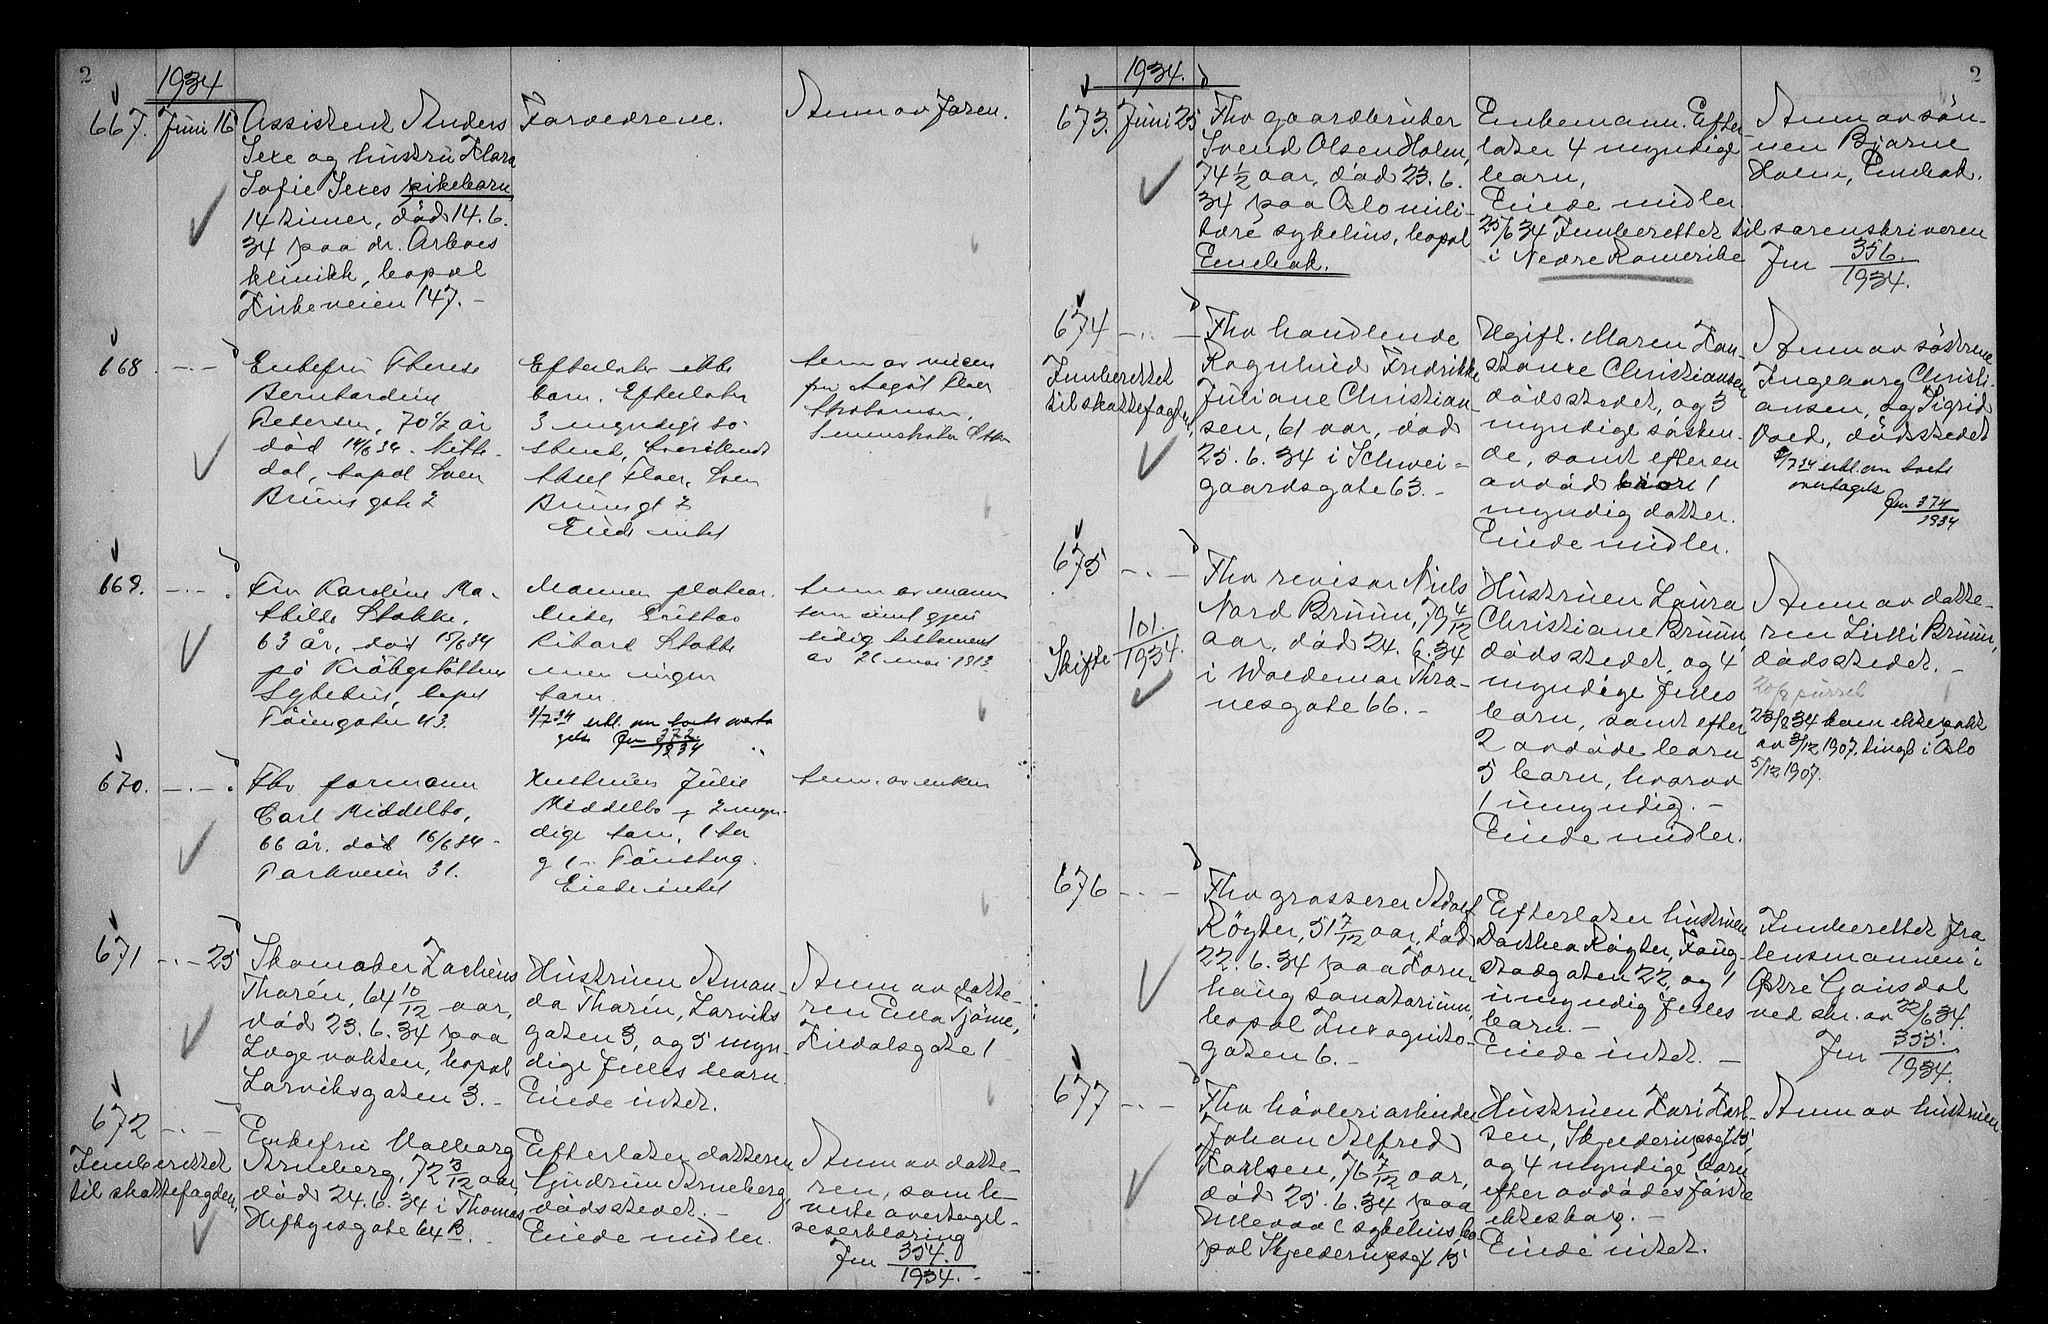 2
1934
667. Juni 16
Assistent Anders
Sexe og hustru Klara
Sofie Sexes pikebarn
14 timer, död 14.6.
34 paa dr. Arboes
klinikk, bopel
Kirkeveien 147. -
Forældrene.
Anm av faren.
668. -.-
Enkefru Therese
Bernhardine
Petersen, 70 1/2 år
död 14/6 34. Nitte-
dal, bopel Sven
Bruns gate 2
Efterlater ikke
barn. Efterlater
3 myndige sö-
skend,
Sven
Brunsgt 2
Eiede intet
Anm av niesen
fru
669. -.-.
Fru Karoline Ma-
thilde Stokke,
63 år, död 15/6 34
på Krohgstötten
Sykehus, bopel
Töiengaten 43.
Mannen
Rikard Stokke
men ingen
barn.
3/7 34 erkl. om boets overta
gelse Jnr 372
1934
Anm av mannen
som gjen
sidig testament
av 21 mai 1913.
670. -.-.
Fhv formann
Carl Middelbo,
66 år, död 16/6 34 -
Parkveien 31.
Hustruen Julie
Middelbo og 2 myn-
dige barn, 1 her
og 1 i Tönsberg.
Eiede intet
Anm. av enken
671 -.- 25
Skomaker Zacheus
Tharén, 64 10/12 aar,
död 23.6.34 paa
Lægevakten, bopel
Larviksgaten 3. -
Hustruen Aman-
da Tharén, Larviks
gaten 3, og 5 myn-
dige felles barn.
Eiede intet.
Anm av datte-
ren Ella Tjöme,
Lidalsgate 1
672 -.-
Innberettet
til skattefogden,
Enkefru Valborg
Arneberg, 72 3/12 aar,
död 24.6.34 i Thomas
Heftyesgate 64 B.
Efterlater datteren
Gudrun Arneberg,
dödsstedet. -
Eiede midler.
Anm av datte-
ren, som le-
verte overtagel-
seserklæring
Jnr 354.
1934. -
2
1934.
673. Juni 25
Fhv gaardbruker
Svend Olsen Holm,
74 1/2 aar, död 23.6.
34 paa Oslo mili-
tære sykehus, bopel
Enebak.
Enkemann. Efter-
later 4 myndige
barn.
Eiede midler.
25/6 34 Innberettet til sorenskriveren
i Nedre Romerike
Jnr 356.
1934.
Anm av sön-
nen Bjarne
Holm, Enebak.
674 -.-
Innberettet
til skattefogden,
Fhv handlende
Ragnhild Fredrikke
Juliane Christian-
sen, 61 aar, död
25.6.34 i Schwei-
gaardsgate 63. -
Ugift. Maren Kon-
stance Christiansen
dödsstedet, og 3
myndige sösken-
de, samt efter en
avdöd bror 1
myndig datter.
Eiede midler.
Anm av söstrene
Ingeborg Christi-
ansen, og Sigrid
Voed, dödsstedet
3/7 34 erkl. om boets
overtagels
Jnr 374
1934
675 -.-
Skifte 101.
1934.
Fhv revisor Niels
Nord Bruun, 79 4/12
aar, död 24.6.34
i Waldemar Thra-
nesgate 66. -
Hustruen Laura
Christiane Bruun,
dödsstedet, og 4
myndige felles
barn, samt efter
2 avdöde barn
5 barn, hvorav
1 umyndig. -
Eiede midler.
Anm av datte-
ren Lilli Bruun,
dödsstedet. -
20/8 purret
23/8 34 kom ektepakt
av 3/12 1907. tingl i Oslo
5/12 1907.
676 -.-
Fhv grosserer Adolf
Røyter, 51 7/12 aar, död
22.6.34 paa Korn-
haug sanatorium,
bopel Incognito-
gaten 6. -
Efterlater hustruen
Dorthea Røyter, Foug-
stadgaten 22, og 1
umyndig felles
barn. -
Eiede intet. -
Innberettet fra
lensmannen i
Østre Gausdal
ved skr. av 22/6 34.
Jnr 355.
1934.
677 -.-
Fhv hövleriarbeider
Johan Alfred
Karlsen, 76 7/12 aar,
död 25.6.34 paa
Ullevaal sykehus, bo-
pel Skjelderupsgt 15
Hustruen Kari Karl-
sen, Skjelderupsgt 15,
og 4 myndige barn
efter avdödes förste
ekteskap. -
Eiede intet.
Anm av hustruen